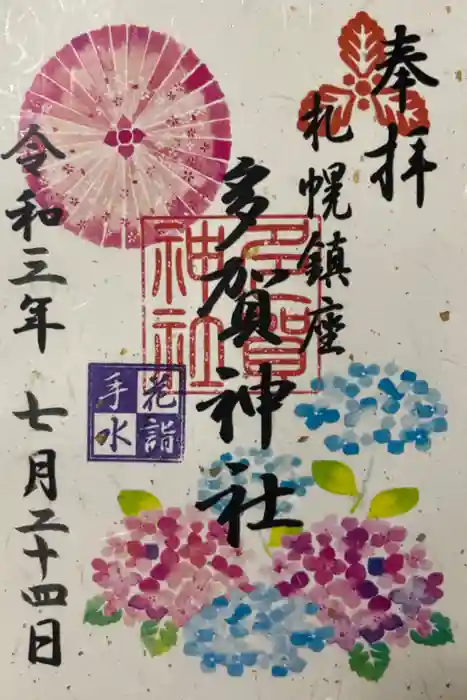 奉拝
札幌鎮座
多賀神社
多賀
神社
花詣
手水
令和三年 七月二十四日